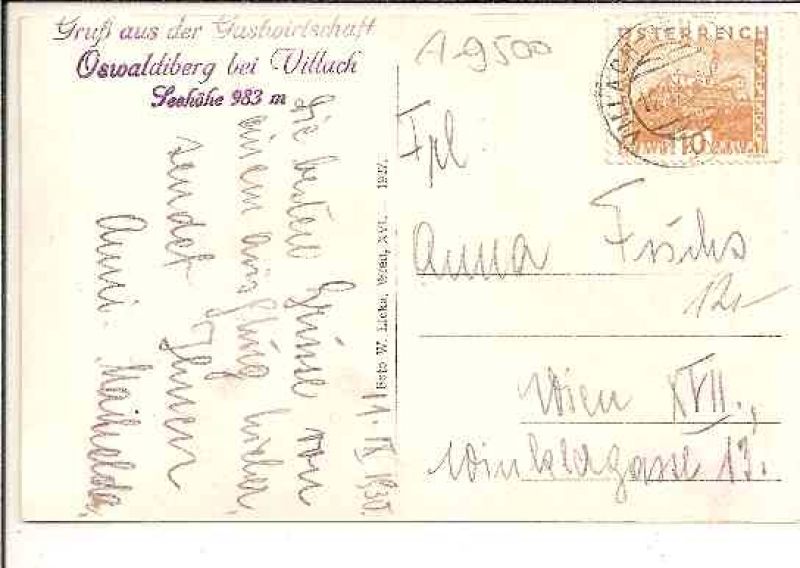 Gruß aus der Gastwirtschaft
Oswaldiberg bei Villach
Seehöhe 983 m
11. IX 1930.
Die besten Grüße von
einem Ausflug
sendet Ihnen
Foto W. Wien, XVI. 1927.
A-9500
ÖSTERREICH
VILLACH
10
Frl.
Anna Fuchs
Wien XVII.,
13.